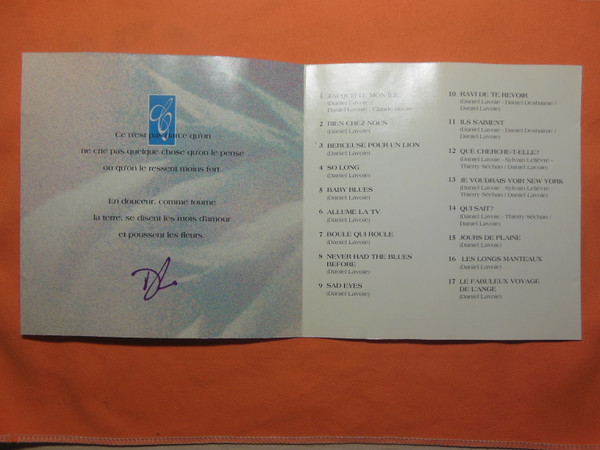 C
Ce n'est pas parce qu'on
ne crie pas quelque chose qu'on le pense
ou qu'on le ressent moins fort.
En douceur, comme tourne
la terre, se disent les mots d'amour
et poussent les fleurs.
DL
1 J'AI QUITTÉ MON ÎLE
(Daniel Lavoie /
Daniel Lavoie -
2 BIEN CHEZ NOUS
(Daniel Lavoie)
3 BERCEUSE POUR UN LION
(Daniel Lavoie)
4 SO LONG
(Daniel Lavoie)
5 BABY BLUES
(Daniel Lavoie)
6 ALLUME LA TV
(Daniel Lavoie)
7 BOULE QUI ROULE
(Daniel Lavoie)
8 NEVER HAD THE BLUES
BEFORE
(Daniel Lavoie)
9 SAD EYES
(Daniel Lavoie)
10 RAVI DE TE REVOIR
(Daniel Lavoie - Daniel Deshaime /
Daniel Lavoie)
11 ILS S'AIMENT
(Daniel Lavoie - Daniel Deshaime /
Daniel Lavoie)
12 QUE CHERCHE-T-ELLE?
(Daniel Lavoie - Sylvain Lelièvre -
Thierry Séchan / Daniel Lavoie)
13 JE VOUDRAIS VOIR NEW YORK
(Daniel Lavoie - Sylvain Lelièvre -
Thierry Séchan / Daniel Lavoie)
14 QUI SAIT?
(Daniel Lavoie - Thierry Séchan /
Daniel Lavoie)
15 JOURS DE PLAINE
(Daniel Lavoie)
16 LES LONGS MANTEAUX
(Daniel Lavoie)
17 LE FABULEUX VOYAGE
DE L'ANGE
(Daniel Lavoie)